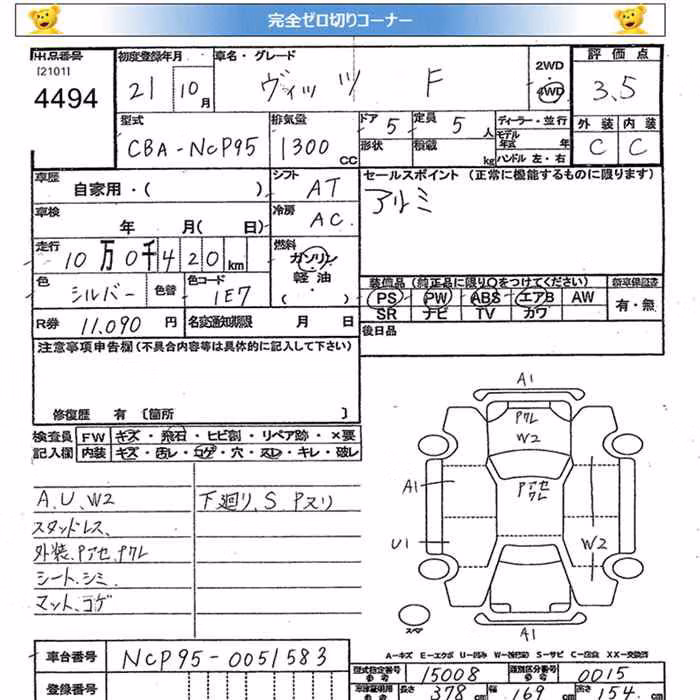 完全ゼロ切りコーナー
出品番号
[2101]
4494
初度登録年月
21 10月
車名・グレード
ヴィッツ F
2WD
4WD
評価点
3.5
型式
CBA-NCP95
排気量
1300 CC
ドア 5
形状
定員 5人
積載 kg
ディーラー・並行
モデル年式 年
ハンドル 左・右
外装 内装
C C
車歴
自家用・( )
シフト AT
車検
年 月( 日)
冷房 AC
セールスポイント (正常に機能するものに限ります)
アルミ
走行
10万0千420km
燃料
ガソリン
軽油
( )
色
シルバー
色替
色コード
1E7
装備品 (純正品に限り○をつけてください)
PS PW ABS エアB AW
SR ナビ TV カワ
新車保証書
有・無
R券 11.090 円
名変通知期限 月 日
後日品
注意事項申告欄 (不具合内容等は具体的に記入して下さい)
修復歴 有 [箇所 ]
検査員 FW キズ・飛石・ヒビ割・リペア跡・×要
記入欄 内装 キズ・汚レ・コゲ・穴・スレ・キレ・破レ
A.U.W2
スタッドレス.
外装.Pアセ.Pクレ
シート.シミ.
マット.コゲ
下廻り.S Pヌリ
A1
Pクレ
W2
A1
Pアセ
クレ
U1
W2
スペア
A1
A-キズ E-エクボ U-凹み W-(補修跡) S-サビ C-腐食 XX-交換済
車台番号 NCP95-0051583
登録番号
型式指定番号 参考 15008
類別区分番号 参考 0015
車体証明用 参考 長さ 378cm 幅 169cm 高さ 154cm